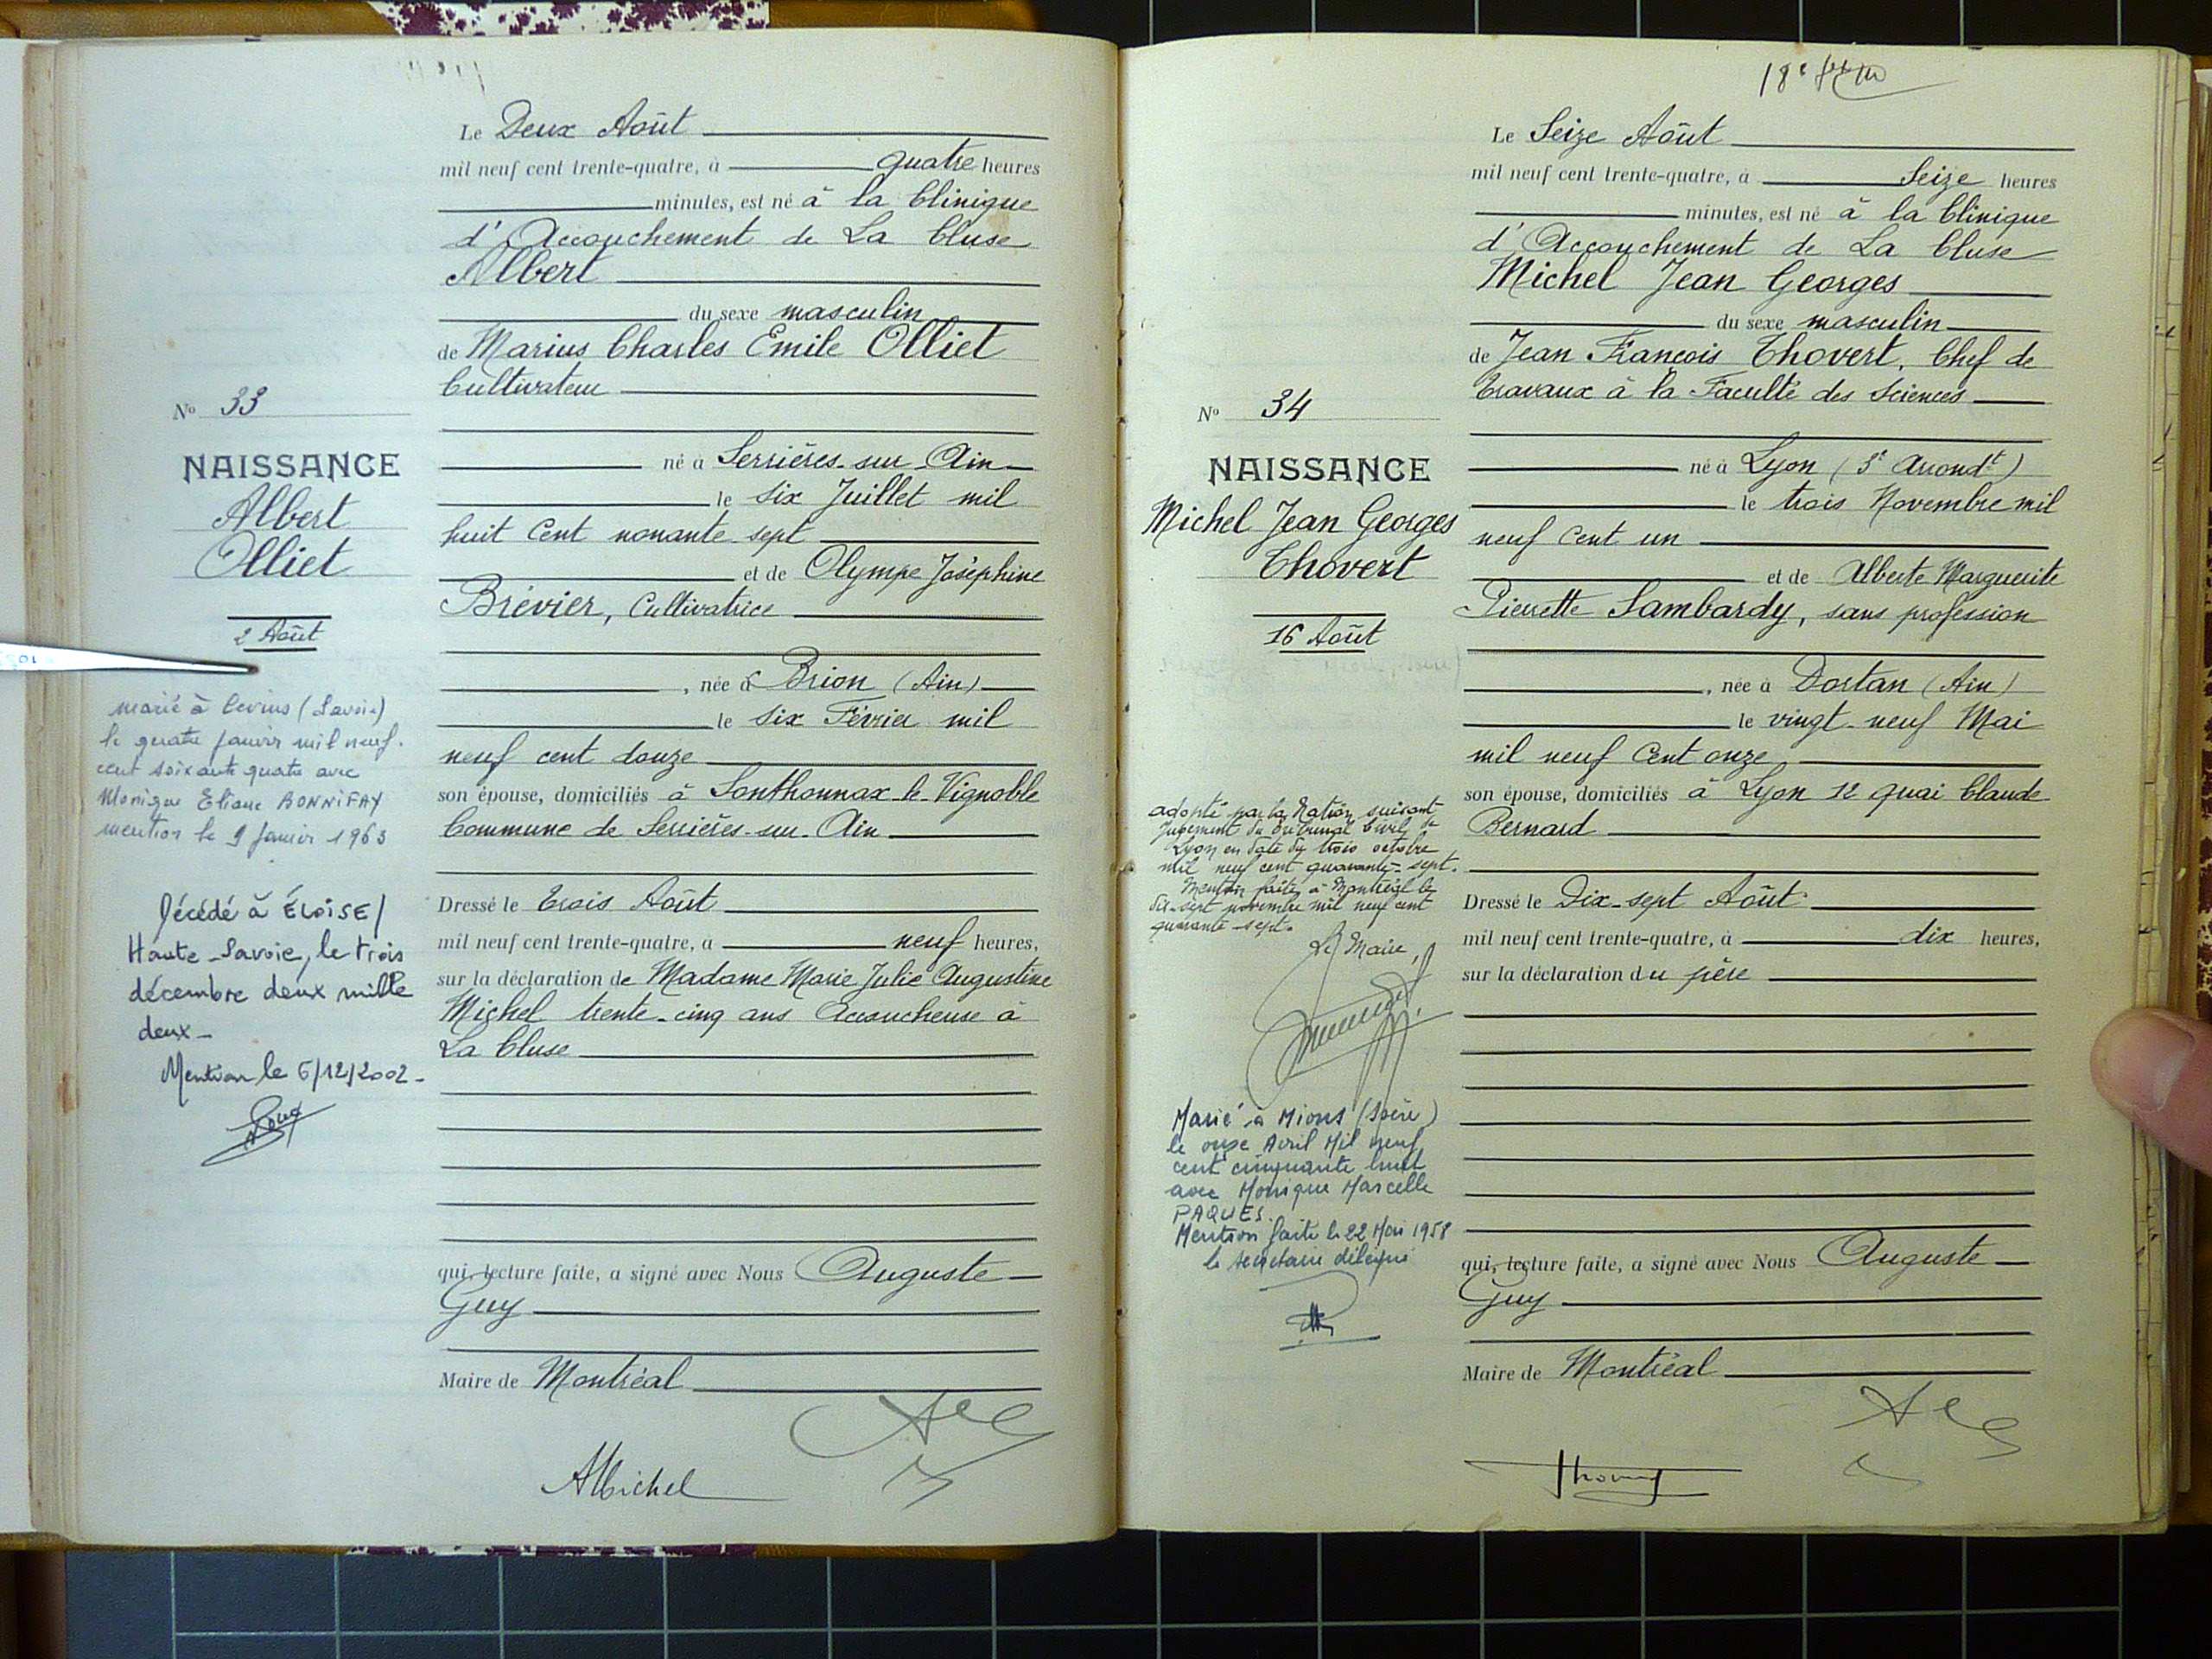 Le Deux Août
mil neuf cent trente-quatre, à quatre heures
minutes, est né à la Clinique
d'Accouchement de La Cluse
Albert
du sexe masculin
de Marius Charles Emile Olliet
Cultivateur
N° 33
NAISSANCE
Albert
Olliet
2 Août
né à Serrières-sur-Ain
le six Juillet mil
huit cent nonante sept
et de Olympe Joséphine
Brévier, Cultivatrice
, née à Brion (Ain)
le six Février mil
neuf cent douze
son épouse, domiciliés à Sonthonnax-le-Vignoble
Commune de Serrières-sur-Ain
Dressé le trois Août
mil neuf cent trente-quatre, à neuf heures,
sur la déclaration de Madame Marie Julie Augustine
Michel trente-cinq ans Accoucheuse à
La Cluse
qui, lecture faite, a signé avec Nous Auguste
Guy
Maire de Montréal
AMichel
marié à (Savoie)
le quatre janvier mil neuf
cent soixante quatre avec
Monique Eliane BONNIFAY
mention le 9 janvier 1963
Décédé à ÉLOÏSE/
Haute-Savoie, le trois
décembre deux mille
deux-
Mention le 6/12/2002-
18e
Le Seize Août
mil neuf cent trente-quatre, à Seize heures
minutes, est né à la Clinique
d'Accouchement de La Cluse
Michel Jean Georges
du sexe masculin
de Jean François Thovert, Chef de
travaux à la Faculté des Sciences
N° 34
NAISSANCE
Michel Jean Georges
Thovert
16 Août
né à Lyon (3e Arrondt)
le trois Novembre mil
neuf cent un
et de Alberte Marguerite
Pierrette Sambardy, sans profession
, née à Dortan (Ain)
le vingt-neuf Mai
mil neuf cent onze
son épouse, domiciliés à Lyon 12 quai Claude
Bernard
Dressé le Dix-sept Août
mil neuf cent trente-quatre, à dix heures,
sur la déclaration du père
qui, lecture faite, a signé avec Nous Auguste
Guy
Maire de Montréal
Thovert
adopté par la Nation suivant
jugement du tribunal Civil de
Lyon en date du trois octobre
mil neuf cent quarante-sept.
Mention faite à Montréal le
dix-sept novembre mil neuf cent
quarante-sept.
Le Maire,
Marié à Mions (Isère)
le onze Avril Mil neuf
cent cinquante huit
avec Monique Marcelle
PAQUES.
Mention faite le 22 Mai 1958
le secrétaire délégué